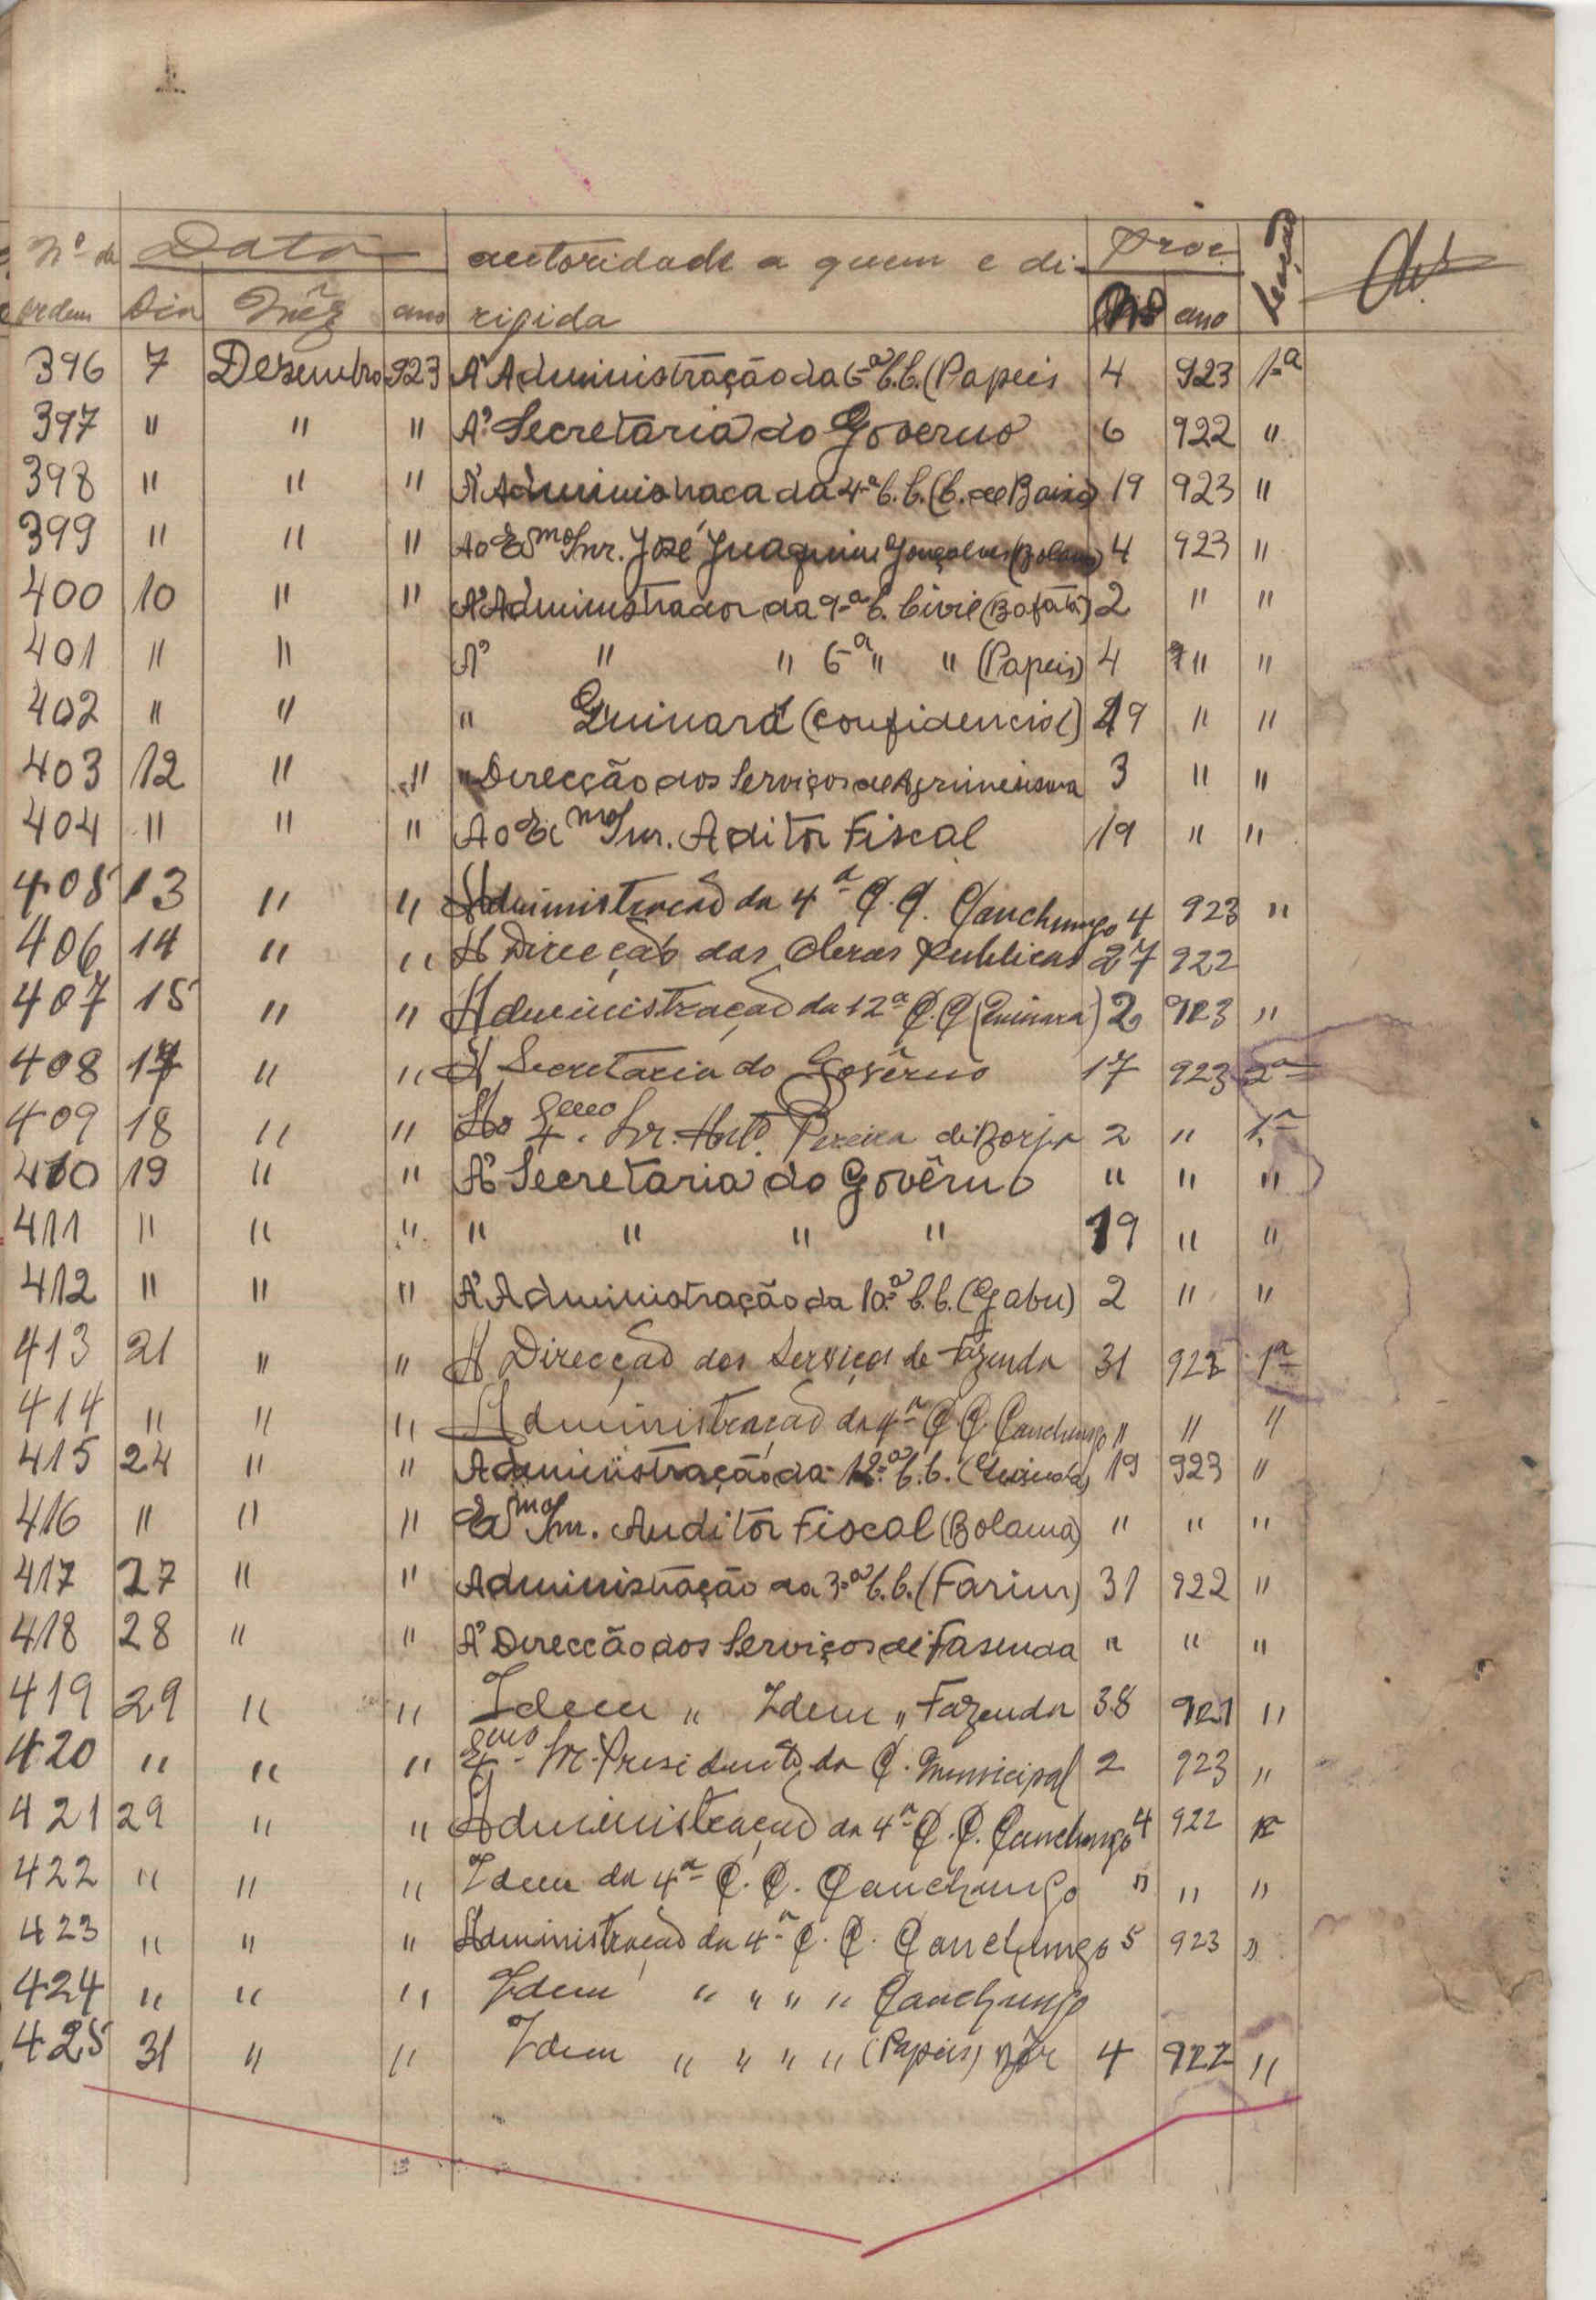 Nº de Data autoridade a quem e di- Proc. Secção
ordem Dia Mêz ano rigida Nº ano
396 7 Dezembro 923 A' Administração da 6ª C.C. (Papeis 4 923 1ª
397 " " " A' Secretaria do Governo 6 922 "
398 " " " A' Administraca da 4ª C.C. (C. de Baixo) 19 923 "
399 " " " Ao Exmo Snr. José Juaquim Gonçalves (Bolama) 4 923 "
400 10 " " A' Administrador da 9ª C. Civil (Bafatá) 2 " "
401 " " A' " " 6ª " " (Papeis) 4 " "
402 " " " Guinard (confidencial) 19 " "
403 12 " " " Direcção dos Serviços de 3 " "
404 " " " Ao Exmo Snr. Aditor Fiscal 19 " "
405 13 " " Administração da 4ª C.C. Canchungo 4 923 "
406 14 " " A Direcção das Obras Publicas 27 922
407 15 " " Administração da 12ª C.C (Quinara) 2 923 "
408 17 " " A Secretaria do Govêrno 17 923 2ª
409 18 " " Ao Exmo. Sr. Antº. Pereira de Borja 2 " 1ª
410 19 " " A' Secretaria do Govêrno " " "
411 " " " " " " " 19 " "
412 " " " A' Administração da 10ª C.C. (Gabu) 2 " "
413 21 " " A Direcção dos Serviços de Fazenda 31 923 1ª
414 " " " Administração da 4ª C C. Canchungo " " "
415 24 " " Administração da 12ª C.C. 19 923 "
416 " " " Exmo Snr. Auditor Fiscal (Bolama) " " "
417 27 " " Administração da 3ª C.C. (Farim) 31 922 "
418 28 " " A' Direccão dos Serviços de Fasenda " " "
419 29 " " Idem " Idem " Fazenda 38 921 "
420 " " " Exmo. Sr. Presidente da C. Municipal 2 923 "
421 29 " " Administração da 4ª C.C. Canchungo 4 922 "
422 " " " Idem da 4ª C.C. Canchungo " " "
423 " " " Administração da 4ª C.C. Canchungo 5 923 "
424 " " " Idem " " " " Canchungo
425 31 " " Idem " " " " (Papeis) 4 922 "